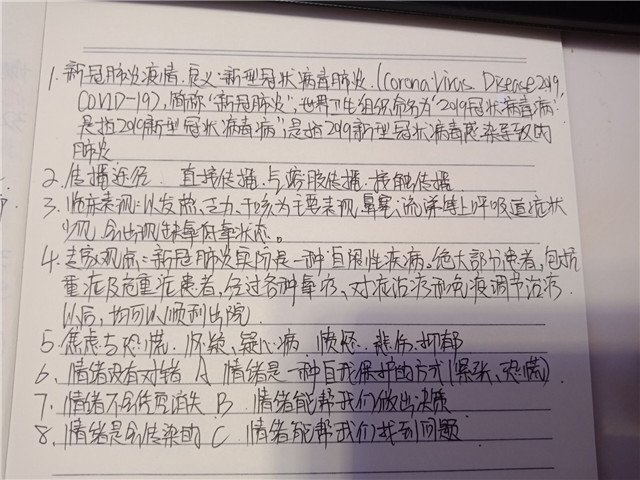 1. 新冠肺炎疫情.定义:新型冠状病毒肺炎.(Corona Virus Disease 2019,
COVID-19),简称"新冠肺炎",世界卫生组织命名为"2019冠状病毒病"
是指2019新型冠状病毒病",是指2019新型冠状病毒感染导致的
肺炎
2. 传播途径 直接传播.与 传播.接触传播
3. 临床表现:以发热、乏力、干咳为主要表现.鼻塞、流涕等上呼吸道症状
少见,会出现缺氧低氧状态。
4. 观点:新冠肺炎实际是一种自限性疾病。绝大部分患者,包括
重症及危重症患者,经过各种氧疗、对症治疗和免疫调节治疗
以后,均可以顺利出院
5. 焦虑与恐慌.怀疑、疑心病.愤怒..悲伤.抑郁
6. 情绪没有对错 A 情绪是一种自我保护的方式(紧张、恐慌)
7. 情绪不会凭空消失 B. 情绪能帮我们做出决策
8. 情绪是会传染的 C. 情绪能帮我们找到问题